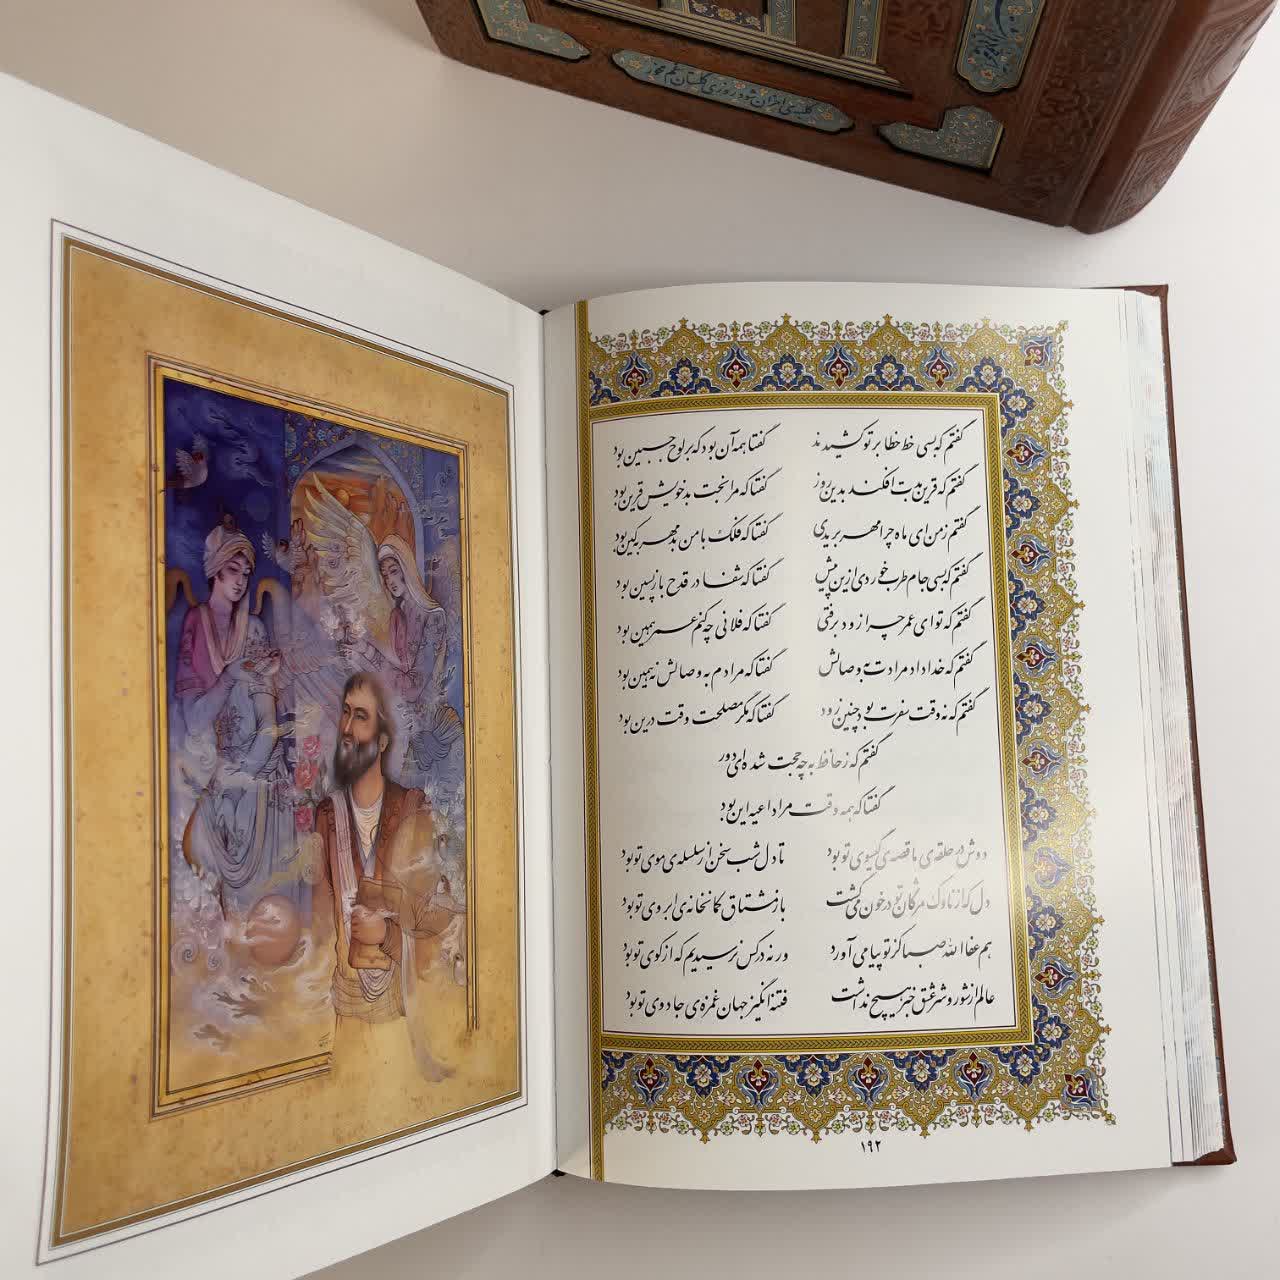 کلبه‌ی احزان شود روزی گلستان غم مخور
گفتم که بسی خط خطا بر تو کشیدند گفتا همه آن بود که بر لوح جبین بود
گفتم که قرین بدت افکند بدین روز گفتا که مرا بخت بد خویش قرین بود
گفتم ز من ای ماه چرا مهر بریدی گفتا که فلک با من بد مهر به کین بود
گفتم که بسی جام طرب خوردی ازین پیش گفتا که شفا در قدح بازپسین بود
گفتم که تو ای عمر چرا زود برفتی گفتا که فلانی چه کنم عمر همین بود
گفتم که خدا داد مرادت به وصالش گفتا که مرادم به وصالش نه همین بود
گفتم که نه وقت سفرت بود چنین زود گفتا که مگر مصلحت وقت درین بود
گفتم که ز حافظ به چه حجت شده‌ای دور
گفتا که همه وقت مرا داعیه این بود
دوش در حلقه‌ی ما قصه‌ی گیسوی تو بود تا دل شب سخن از سلسله‌ی موی تو بود
دل که از ناوک مژگان تو در خون می‌گشت باز مشتاق کمانخانه‌ی ابروی تو بود
هم عفا الله صبا کز تو پیامی آورد ورنه در کس نرسیدیم که از کوی تو بود
عالم از شور و شر عشق خبر هیچ نداشت فتنه انگیز جهان غمزه‌ی جادوی تو بود
۱۹۲